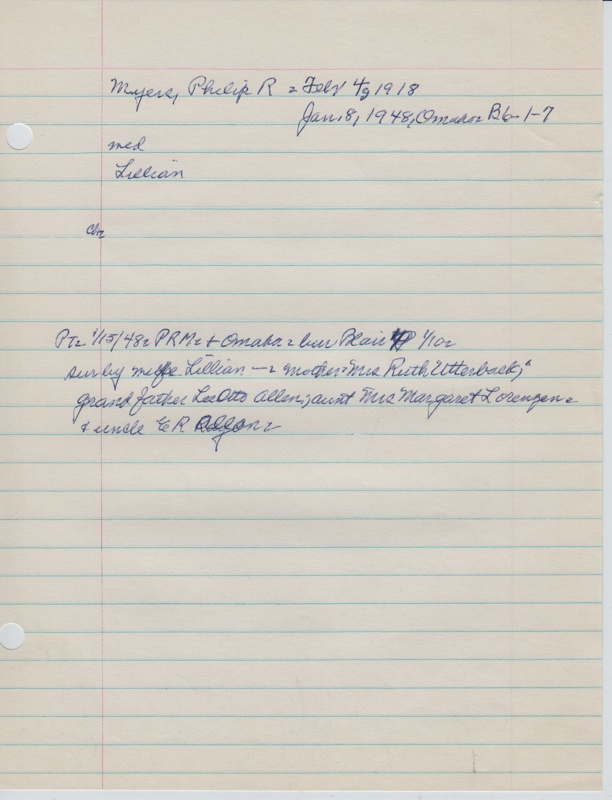 Myers, Philip R = Feb 4/9 1918
Jan. 8, 1948, Omaha = B6-1-7
med
Lillian
ch=
PT= 1/15/48= PRM= + Omaha = bur Blair 1/10=
surv by wife Lillian — = mother = "Mrs Ruth Utterback,"
grand father Otto Allen; aunt Mrs Margaret Lorenzen =
+ uncle E R =